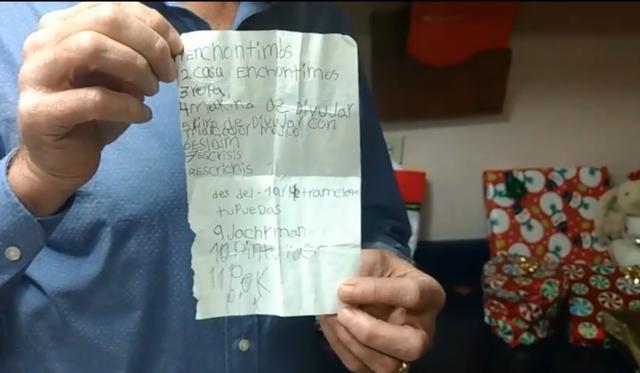 1 Enchontimos
2 casa Enchontimos
3 ropa
4 makina de Divujar
5 libro de Divujar con
marcador majico
6 eslaim
7 Escrisis
8 escrichis
des del-1 al
tu puedas
9 Jachtman
10 Pinturas
11 Pok